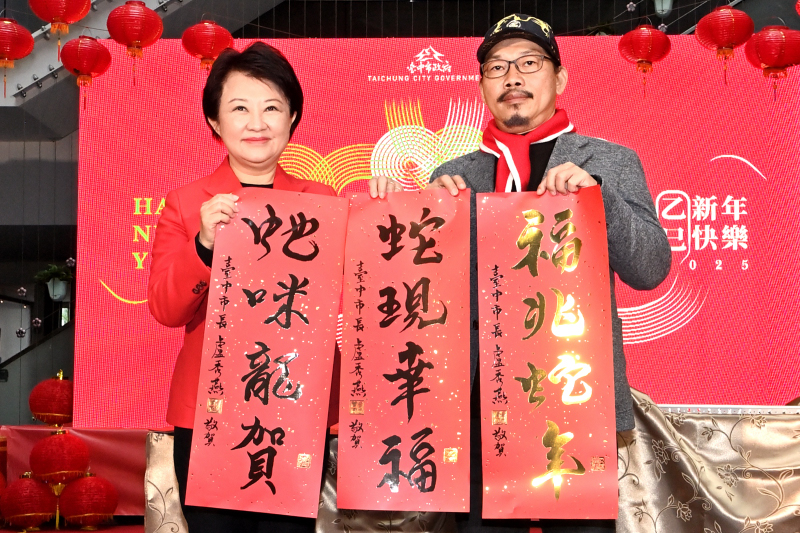 臺中市政府
TAICHUNG CITY GOVERNMENT
乙巳
新年
快樂
2025
咪龍賀
臺中市長 盧秀燕 敬賀
蛇現幸福
臺中市長 盧秀燕 敬賀
福兆蛇年
臺中市長 盧秀燕 敬賀